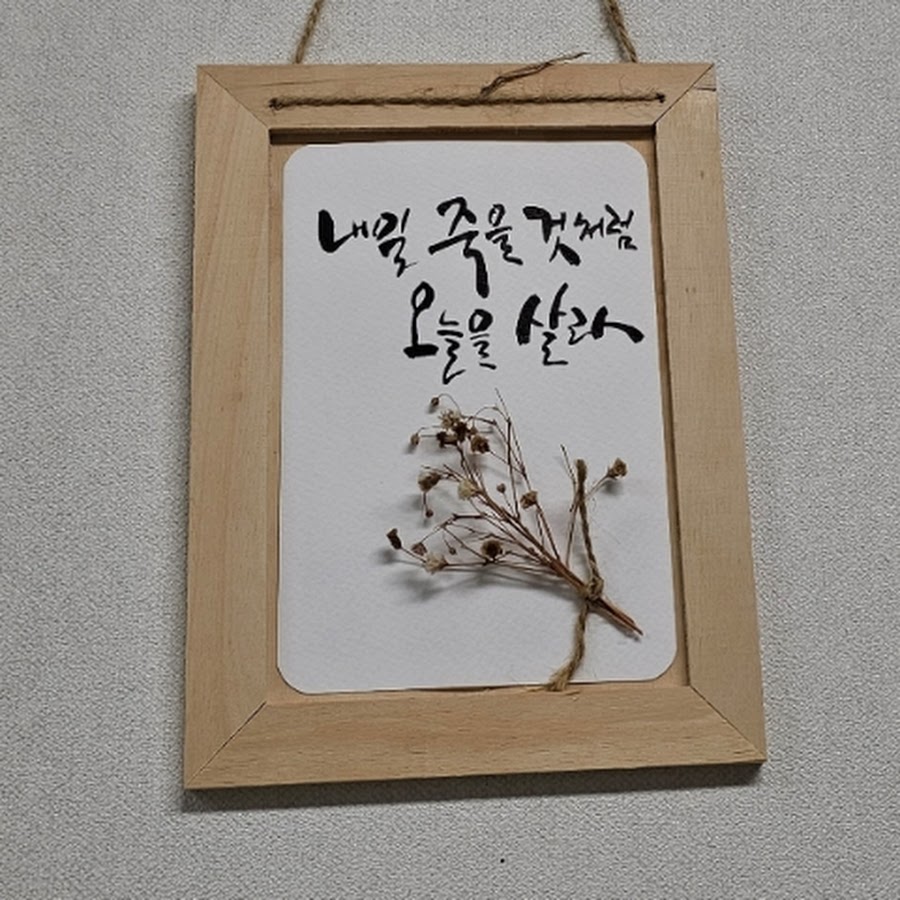 내일 죽을 것처럼
오늘을 살라